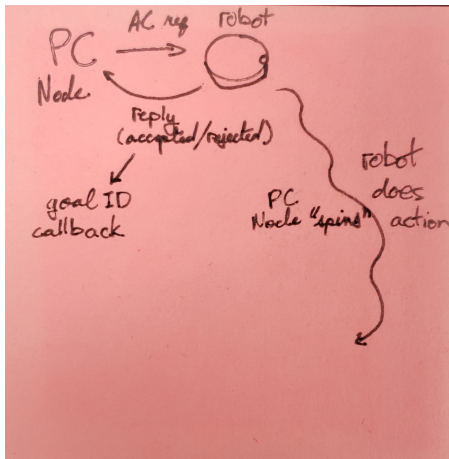 AC req
robot
PC
Node
reply
(accepted/rejected)
goal ID
callback
PC
Node "spins"
robot
does
action